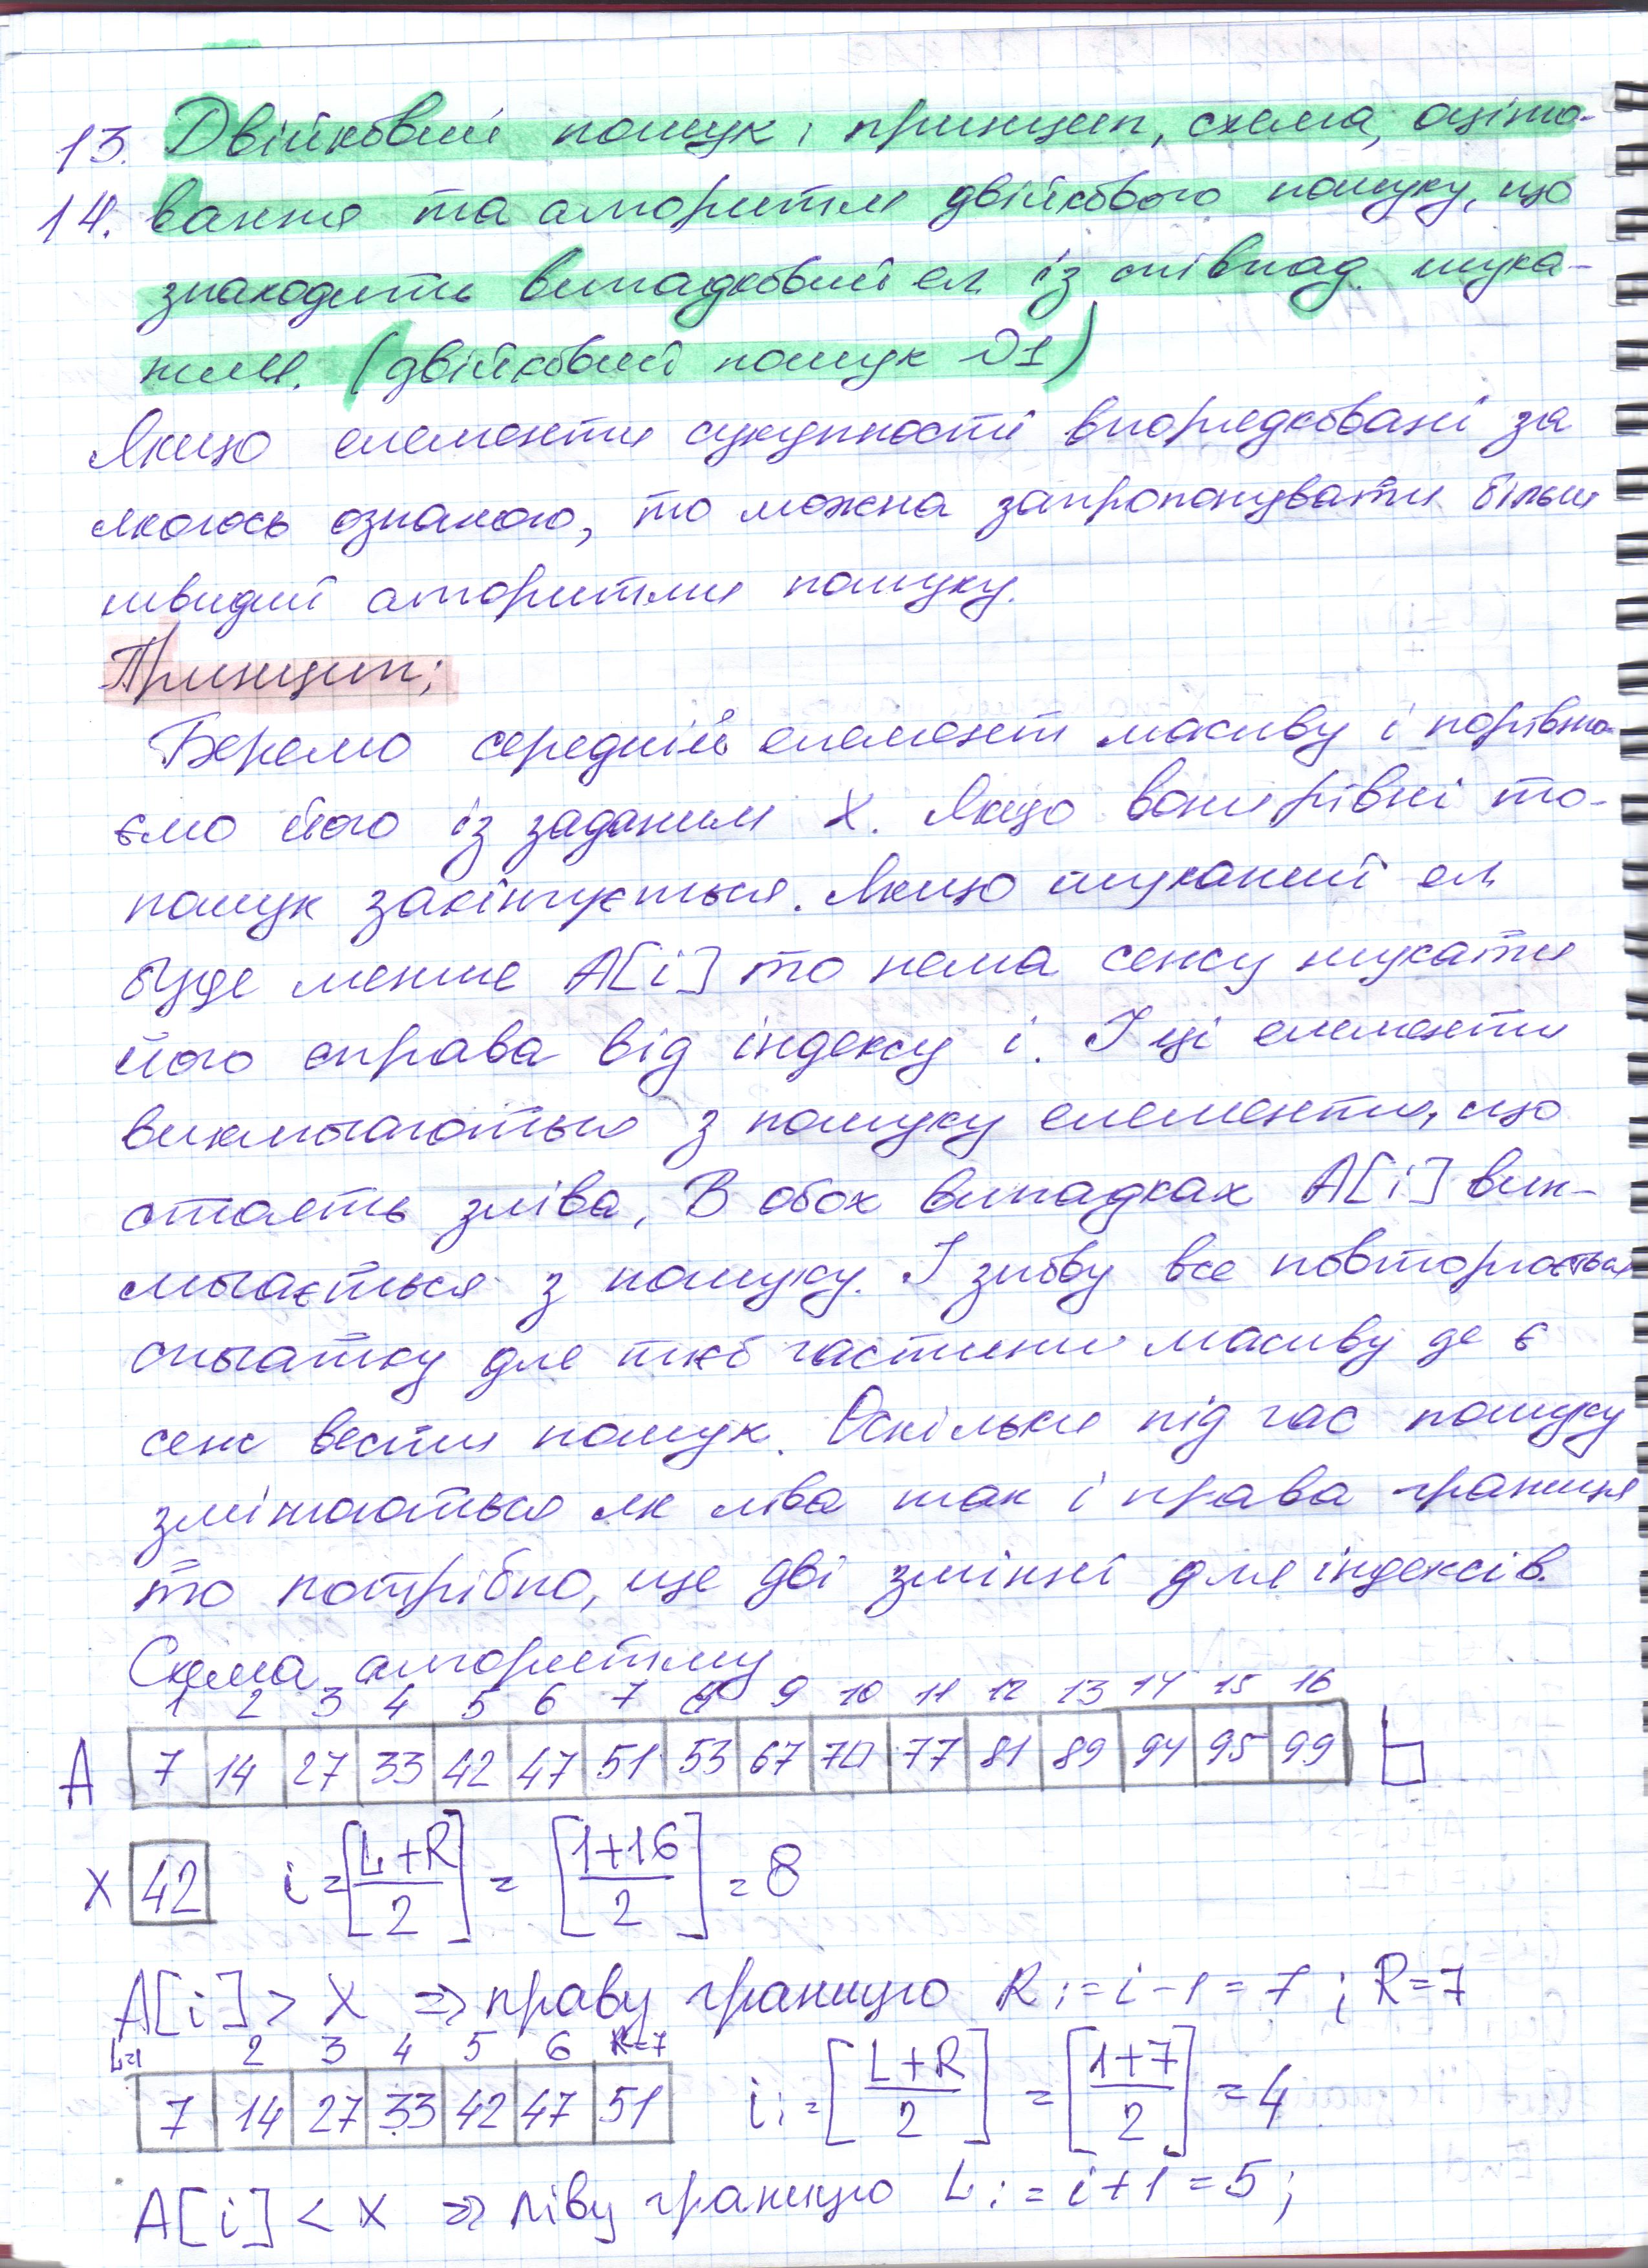 13. Двійковий пошук, принцип, схема, оціню-
14. вання та алгоритм двійкового пошуку, що
знаходить випадковий ел. із співпад. шука-
ним. (двійковий пошук №1)
Якщо елементи сукупності впорядковані за
якоюсь ознакою, то можна запропонувати більш
швидкі алгоритми пошуку.
Принцип:
Беремо середній елемент масиву і порівню-
ємо його із заданим X. Якщо вони рівні то-
пошук закінчується. Якщо шуканий ел
буде менше A[i] то нема сенсу шукати
його справа від індексу i. І ці елементи
виключаються з пошуку елементи, що
стоять зліва, В обох випадках A[i] вик-
лючається з пошуку. І знову все повторюється
спочатку для тієї частини масиву де є
сенс вести пошук. Оскільки під час пошуку
змінюються як ліва так і права границя
то потрібно, ще дві змінні для індексів.
Схема алгоритму
1 2 3 4 5 6 7 8 9 10 11 12 13 14 15 16
A 7 14 27 33 42 47 51 53 67 70 77 81 89 94 95 99
X 42 i = [L+R / 2] = [1+16 / 2] = 8
A[i] > X ⇒ праву границю R := i - 1 = 7 ; R = 7
L=1 2 3 4 5 6 R=7
7 14 27 33 42 47 51 i := [L+R / 2] = [1+7 / 2] = 4
A[i] < X ⇒ ліву границю L := i + 1 = 5 ;